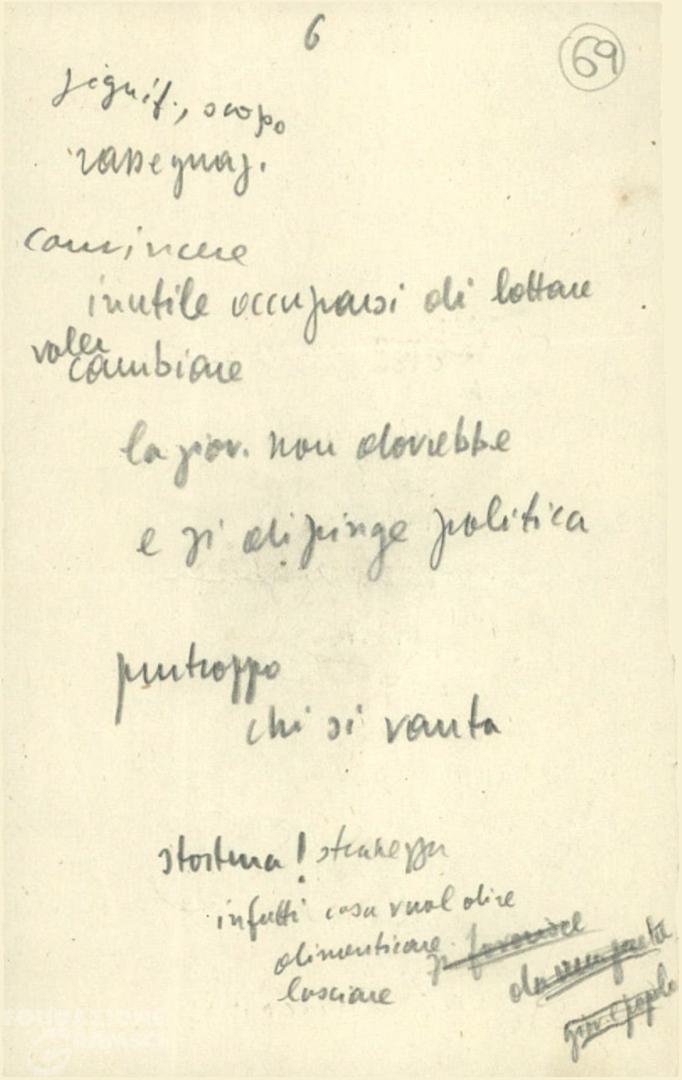 6
69
signif., scopo
rassegnaz.
convincere
inutile occuparsi di lottare
voler
cambiare
la giov. non dovrebbe
e si dipinge politica
purtroppo
chi si vanta
stortura! stranezza
infatti cosa vuol dire
dimenticare
si favorisce
lasciare
da
giov. e popolo
FONDAZIONE
GRAMSCI